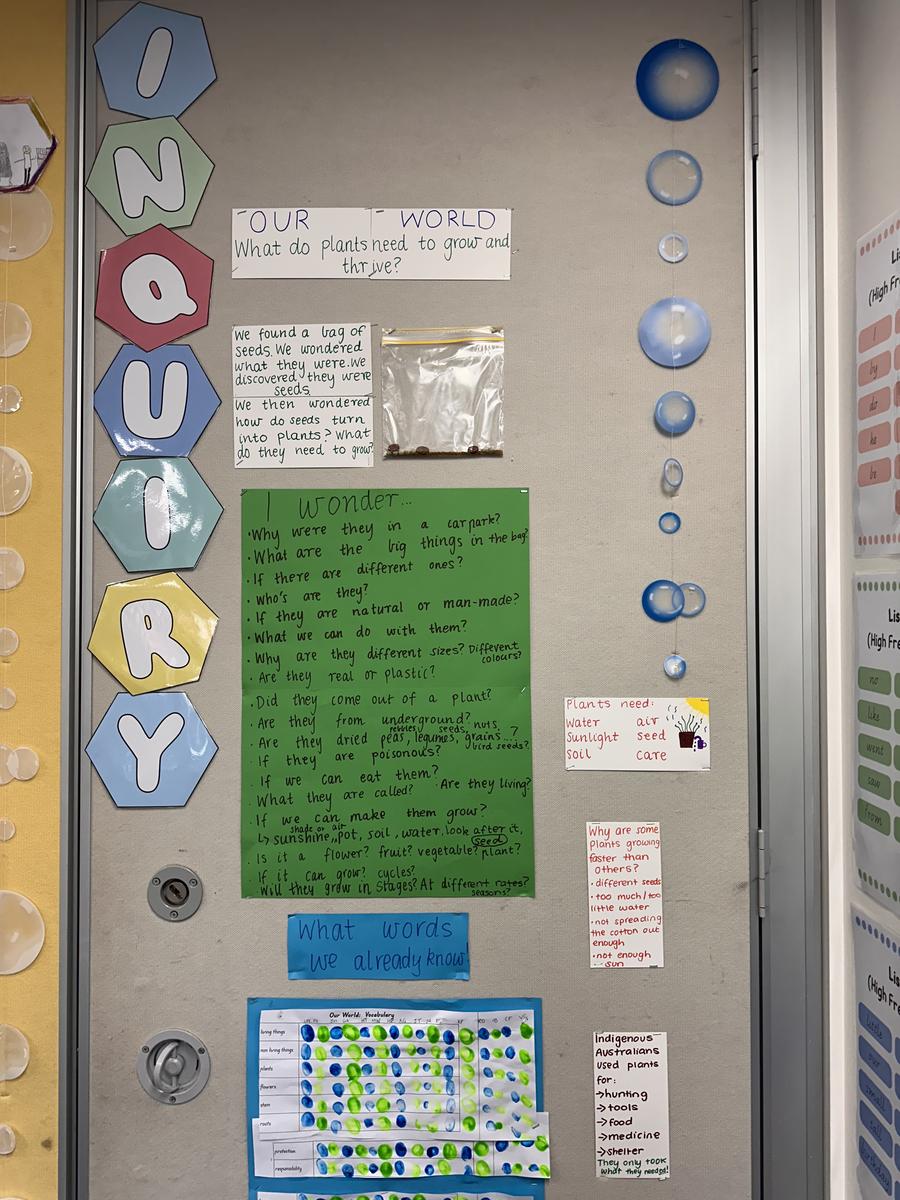 I
N
Q
U
I
R
Y
OUR WORLD
What do plants need to grow and
thrive?
We found a bag of
seeds. We wondered
what they were. We
discovered they were
seeds.
We then wondered
how do seeds turn
into plants? What
do they need to grow?
I wonder...
·Why were they in a carpark?
·What are the big things in the bag?
·If there are different ones?
·Who's are they?
·If they are natural or man-made?
·What we can do with them?
·Why are they different sizes? Different
colours?
·Are they real or plastic?
·Did they come out of a plant?
·Are they from underground?
pebbles, seeds, nuts,
·Are they dried peas, legumes, grains...?
bird seeds?
·If they are poisonous?
·If we can eat them?
·What they are called? ·Are they living?
·If we can make them grow?
shade or air
↳ sunshine, pot, soil, water, look after it,
seed
·Is it a flower? fruit? vegetable? plant?
·If it can grow? cycles?
·Will they grow in stages? At different rates?
seasons?
What words
we already know!
Our World: Vocabulary
living things
non living things
plants
flowers
stem
roots
protection
responsibility
Plants need:
Water air
Sunlight seed
Soil care
Why are some
plants growing
faster than
others?
·different seeds
·too much/too
little water
·not spreading
the cotton out
enough
·not enough
sun
Indigenous
Australians
used plants
for:
→hunting
→tools
→food
→medicine
→shelter
They only took
what they needed!
Lis
(High Fre
I
by
do
he
be
Lis
(High Fre
no
like
went
saw
from
Lis
(High Fre
little
our
small
fall
birthday